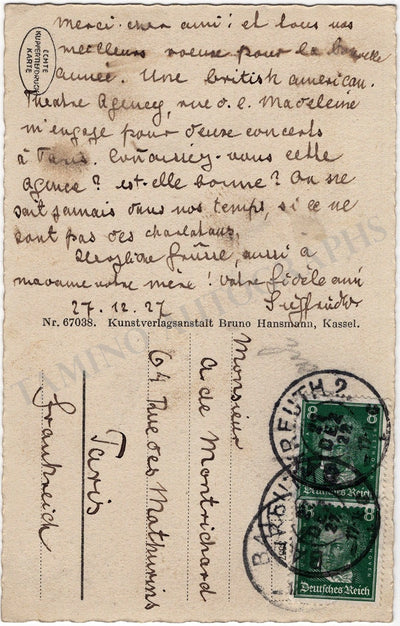 ECHTE
KUPFERTIEFDRUCK
KARTE
Merci cher ami! et tous vos
meilleurs voeux pour la nouvelle
année. Une british american.
Theatre Agency, rue d. l. Madeleine
m'engage pour deux concerts
à Paris. Connaissiez-vous cette
agence? est-elle bonne? On ne
sait jamais dans nos temps, si ce ne
sont pas des charlatans,
Herzliche Grüsse, aussi a
madame votre mère! Votre fidèle ami
27.12.27
Nr. 67038. Kunstverlagsanstalt Bruno Hansmann, Kassel.
Monsieur
A de Montrichard
64 Rue des Mathurins
Paris
Frankreich
BAYREUTH 2
8
Deutsches Reich
8
Deutsches Reich
TAMINO AUTOGRAPHS